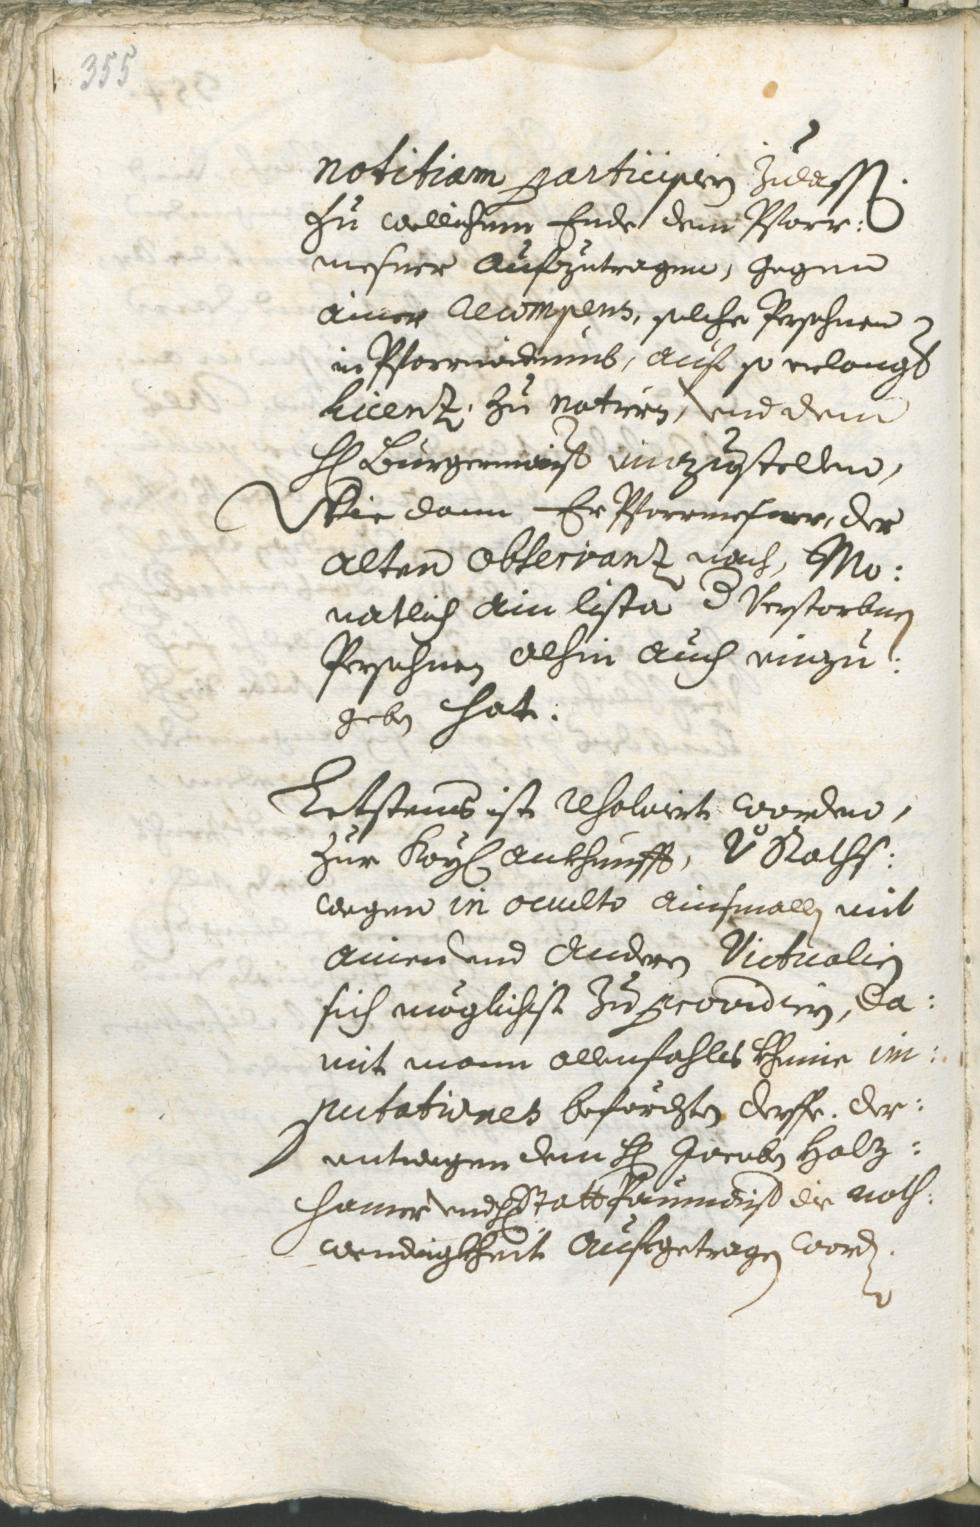 355
notitiam participirn zulass.
Zu wellichem Ende dem Pfarr:
mesner aufzutragen, gegen
ainer Recompens, solche Persohnen
in Pfarrwidumb, auf so erlangt
licenz, zu notiern, und dem
H Burgermaist einzustellen,
Wie dann Er Pfarrmesner, der
alten observanz nach, Mo:
natlich ain lista d Verstorbnen
Persohnen alhin auch einzu:
geben hat.
Letstens ist resolvirt worden,
zur Kayl ankhunfft, V Raths:
wegen in occulto ainsmalls mit
ainen und anderen Victualien
sich möglichist zu providiern, da:
mit mann allenfahls kheine im:
putationes beförchten derffe. der:
entwegen dem H Jacoben Holz:
hamer und H Stattpaumaist die noth:
wendigkheit aufgetragen word.